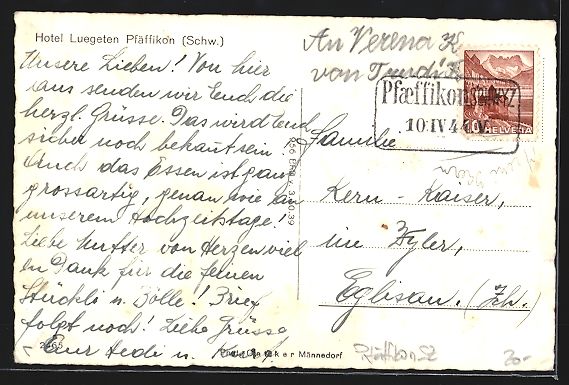 Hotel Luegeten Pfäffikon (Schw.)
An Verena K
von Trudi K
Pfæffikon (SCHWYZ)
10.IV 4
HELVETIA
Unsere Lieben! Von hier
aus senden wir Euch die
herzl. Grüsse. Das wird Euch
sicher noch bekannt sein.
Auch das Essen ist ganz
grossartig, genau wie an
unserem Hochzeitstage!
Liebe Mutter von Herzen viel
en Dank für die feinen
Stückli u. Bölle! Brief
folgt noch! Liebe Grüsse
Eur Hedi u.
Familie
Kern-Kaiser,
im Wyler,
Eglisau. (Zh.)
2465
Männedorf
Pfäffikon SZ
20.-